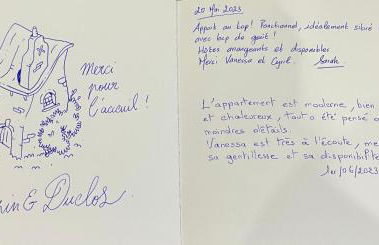 Merci
pour
l'accueil !
& Duclos
20 Mai 2023
Appart au top! Fonctionnel, idéalement situé
avec bcp de goût !
Hôtes arrangeants et disponibles
Merci Vanessa et Cyril. Sarah
L'appartement est moderne, bien
et chaleureux, tout a été pensé
moindres détails.
Vanessa est très à l'écoute, me
sa gentillesse et sa disponibilité
le 1/06/2023